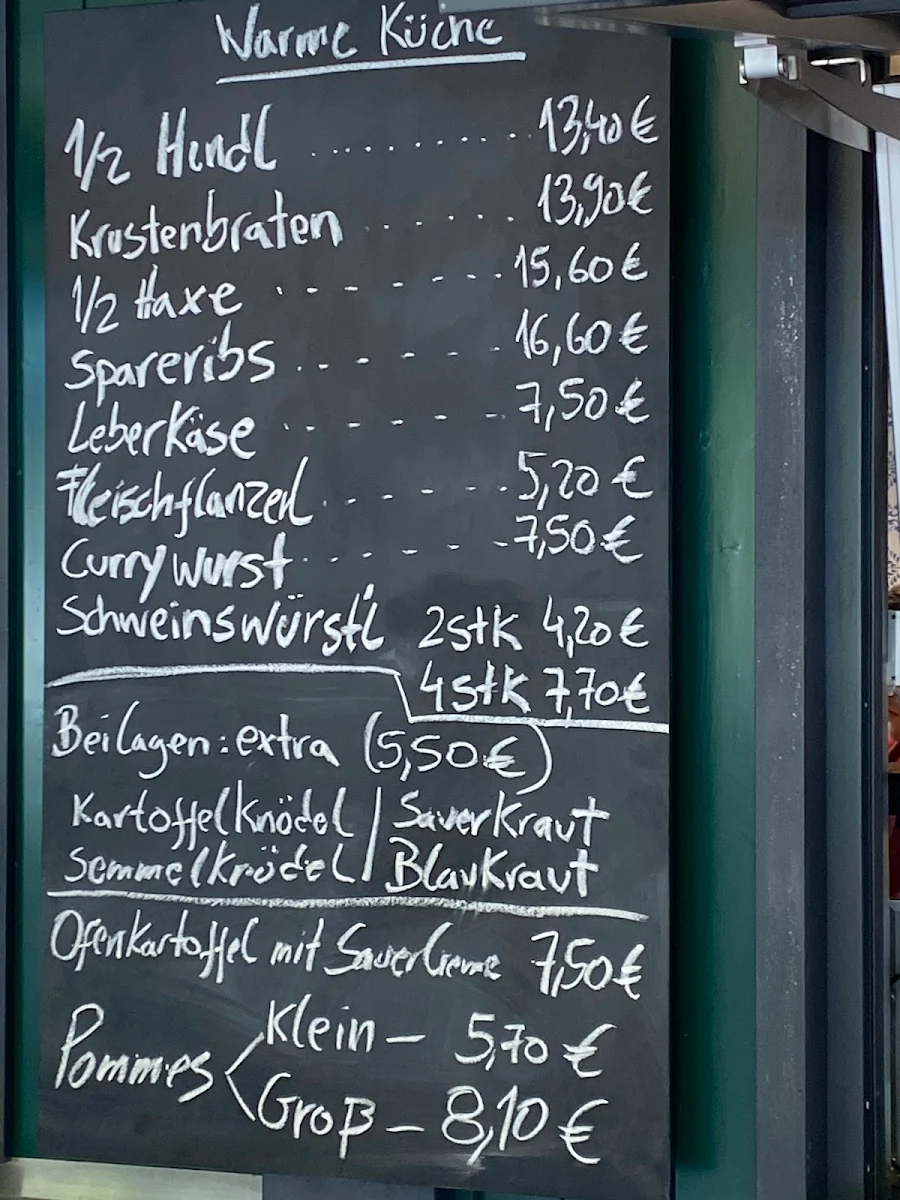 Warme Küche
1/2 Hendl ......... 13,40 €
Krustenbraten ...... 13,90 €
1/2 Haxe ....... 15,60 €
Spareribs ...... 16,60 €
Leberkäse ...... 7,50 €
Fleischflanzerl ...... 5,20 €
Currywurst ...... 7,50 €
Schweinswürstl 2stk 4,20 €
4stk 7,70 €
Beilagen: extra (5,50 €)
Kartoffelknödel / Sauerkraut
Semmelknödel / Blaukraut
Ofenkartoffel mit Sauercreme 7,50 €
Pommes < Klein – 5,70 €
Groß – 8,10 €